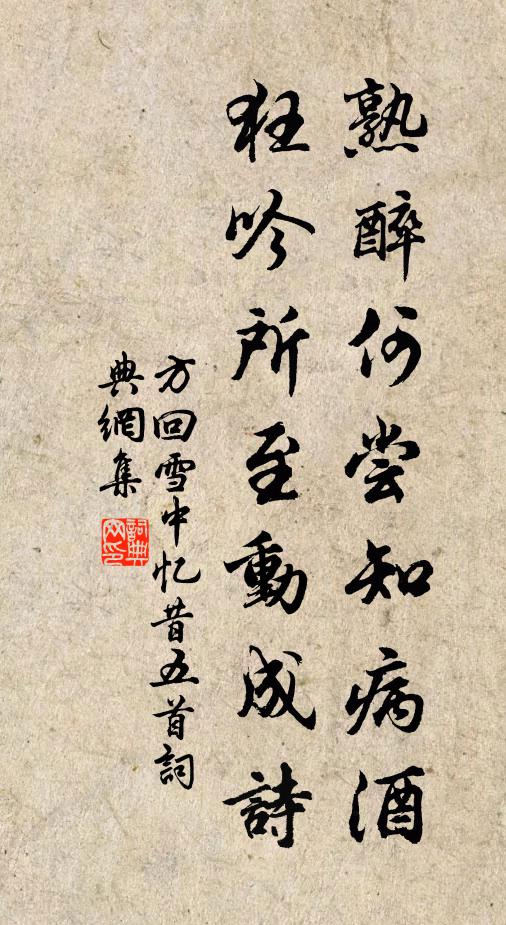 熟醉何尝知病酒
狂吟所至動成詩
方回雪中忆昔五首詞
典網集
詞典网印